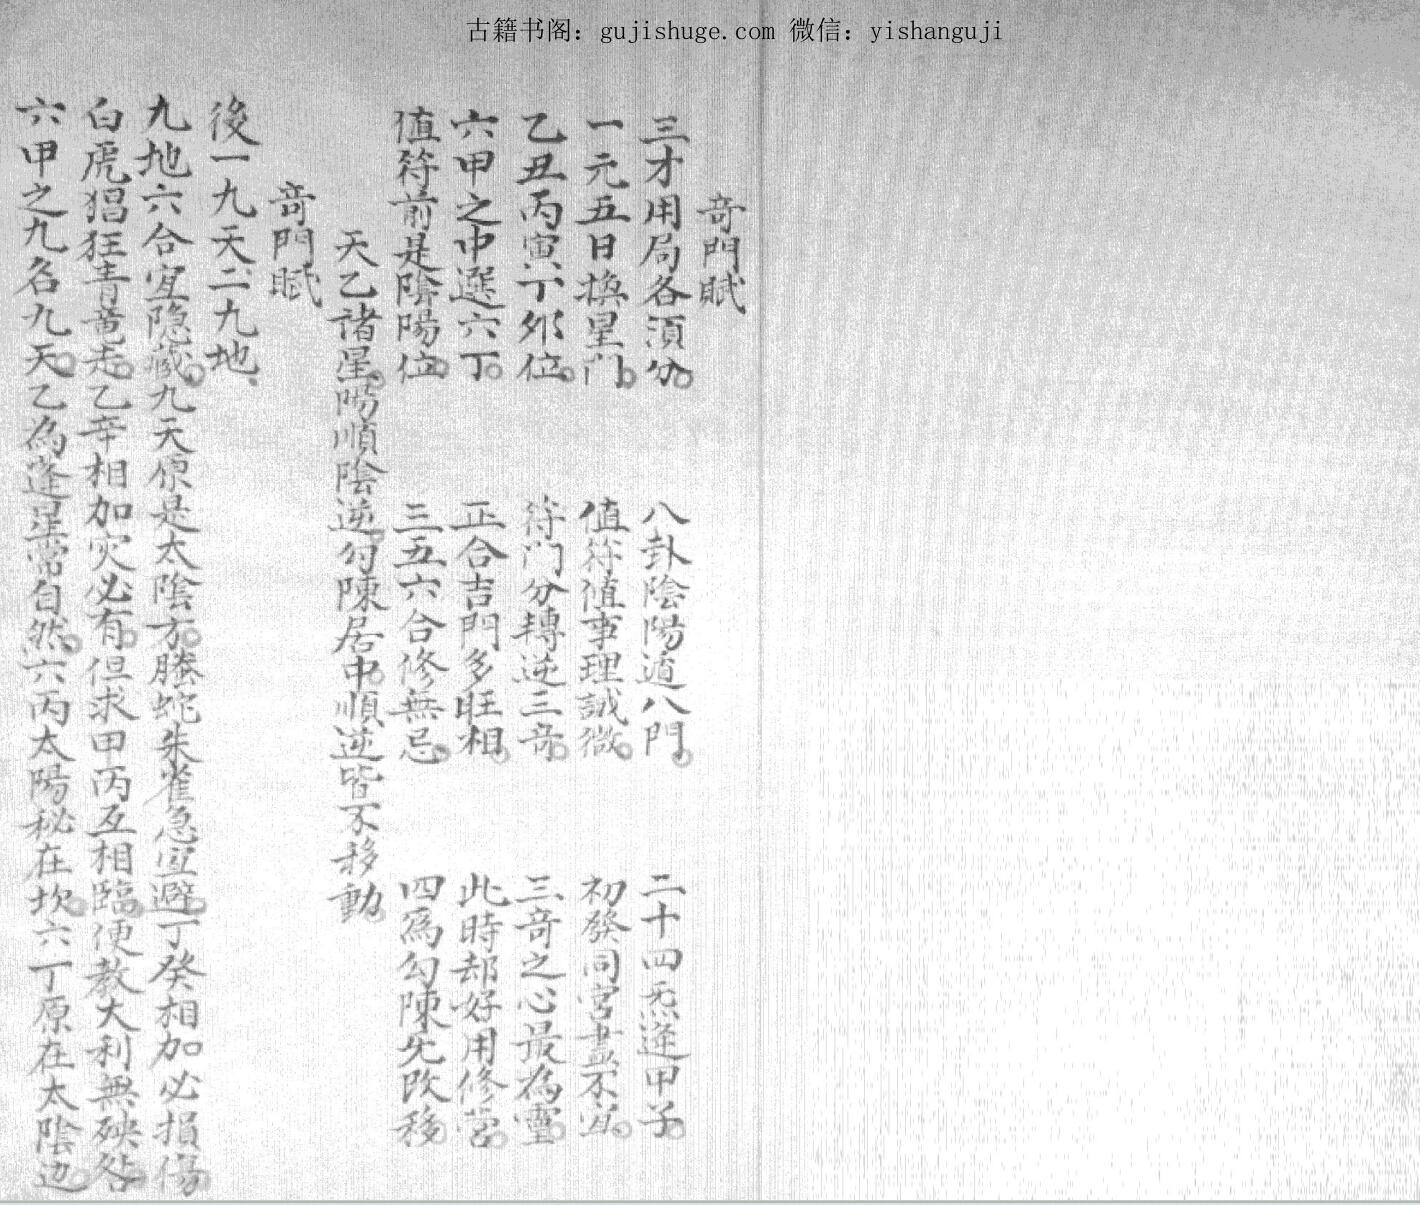 古籍书阁：gujishuge.com 微信：yishanguji
竒門賦
三才用局各湏分 八卦陰陽遁八門 二十四炁逢甲子
一元五日換星门 值符值事理誠微 初發同宮盡不宜
乙丑丙寅丁夘位 符门分轉逆三竒 三竒之心最為靈
六甲之中選六丁 正合吉門多旺相 此時却好用修营
值符前是陰陽位 三五六合修無忌 四爲勾陳先改移
天乙諸星陽順陰逆勾陳居中順逆皆不移動
竒門賦
後一九天二九地
九地六合宜隐藏九天原是太陰方螣蛇朱雀急宜避丁癸相加必損傷
白虎猖狂青竜走乙辛相加灾必有但求甲丙互相臨便教大利無殃咎
六甲之九名九天乙為逢星常自然六丙太陽秘在坎六丁原在太陰边